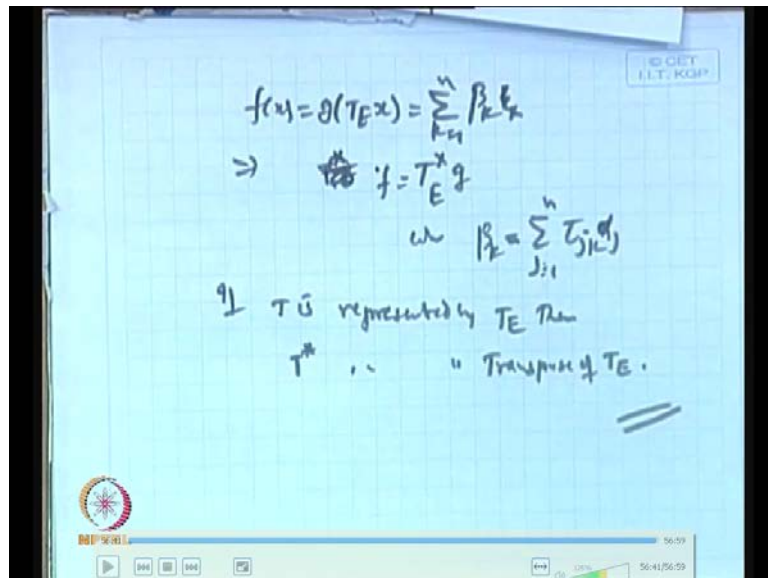 © CET
I.I.T. KGP
f(x) = g(T_E x) = \sum_{k=1}^{n} β_k ξ_k
⇒ f = T_E^* g
β_k = \sum_{j=1}^{n} τ_{jk} α_j
If T is represented by T_E Then
T^* ,, ,, Transpose of T_E .
NPTEL
56:41
56:59
56:41/56:59